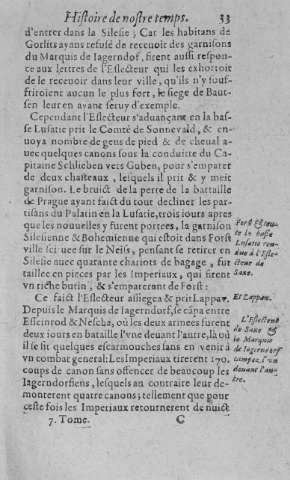 Histoire de nostre temps. 33
d'entrer dans la Silesie; Car les habitans de
Gorlits ayans refusé de receuoir des garnisons
du Marquis de Iagerndorf, firent aussi respon-
ce aux lettres de l'Eslecteur qui les exhortoit
de le receuoir dans leur ville, qu'ils n'y souf-
friroient aucun le plus fort, le siege de Baut-
sen leur en ayant seruy d'exemple.
Cependant l'Eslecteur s'aduançant en la bas-
se Lusatie prit le Comté de Sonnevald, & en-
uoya nombre de gens de pied & de cheual a-
uec quelques canons sous la conduitte du Ca-
pitaine Schlieben vers Guben, pour s'emparer
de deux chasteaux, lesquels il prit & y meit
garnison. Le bruict de la perte de la battaille
de Prague ayant faict du tout decliner les par-
tisans du Palatin en la Lusatie, trois iours apres
que les nouuelles y furent portees, la garnison
Silesienne & Bohemienne qui estoit dans Forst
ville sçi uee sur le Neiss, pensant se retirer en
Silesie auec quarante chariots de bagage, fut
taillee en pieces par les Imperiaux, qui firent
vn riche butin, & s'emparerent de Forst:
Ce faict l'Eslecteur assiegea & prit Lappaw.
Depuis le Marquis de Iagerndorf, se cãpa entre
Esseinrod & Nescha, où les deux armees furent
deux iours en bataille l'vne deuant l'autre, là où
il se fit quelques escarmouches sans en venir à
vn combat general: Les Imperiaux tirerent 170.
coups de canon sans offencer de beaucoup les
Iagerndorfiens, lesquels au contraire leur de-
monterent quatre canons; tellement que pour
ceste fois les Imperiaux retournerent de nuict
7. Tome. C
Forst &
te la basse
Lusatie ren-
due à l'Esle-
cteur de
Saxe.
Et Lappaw.
L'Eslecteur
de Saxe &
le Marquis
de Iagerndorf
campez l'vn
deuant l'au-
tre.